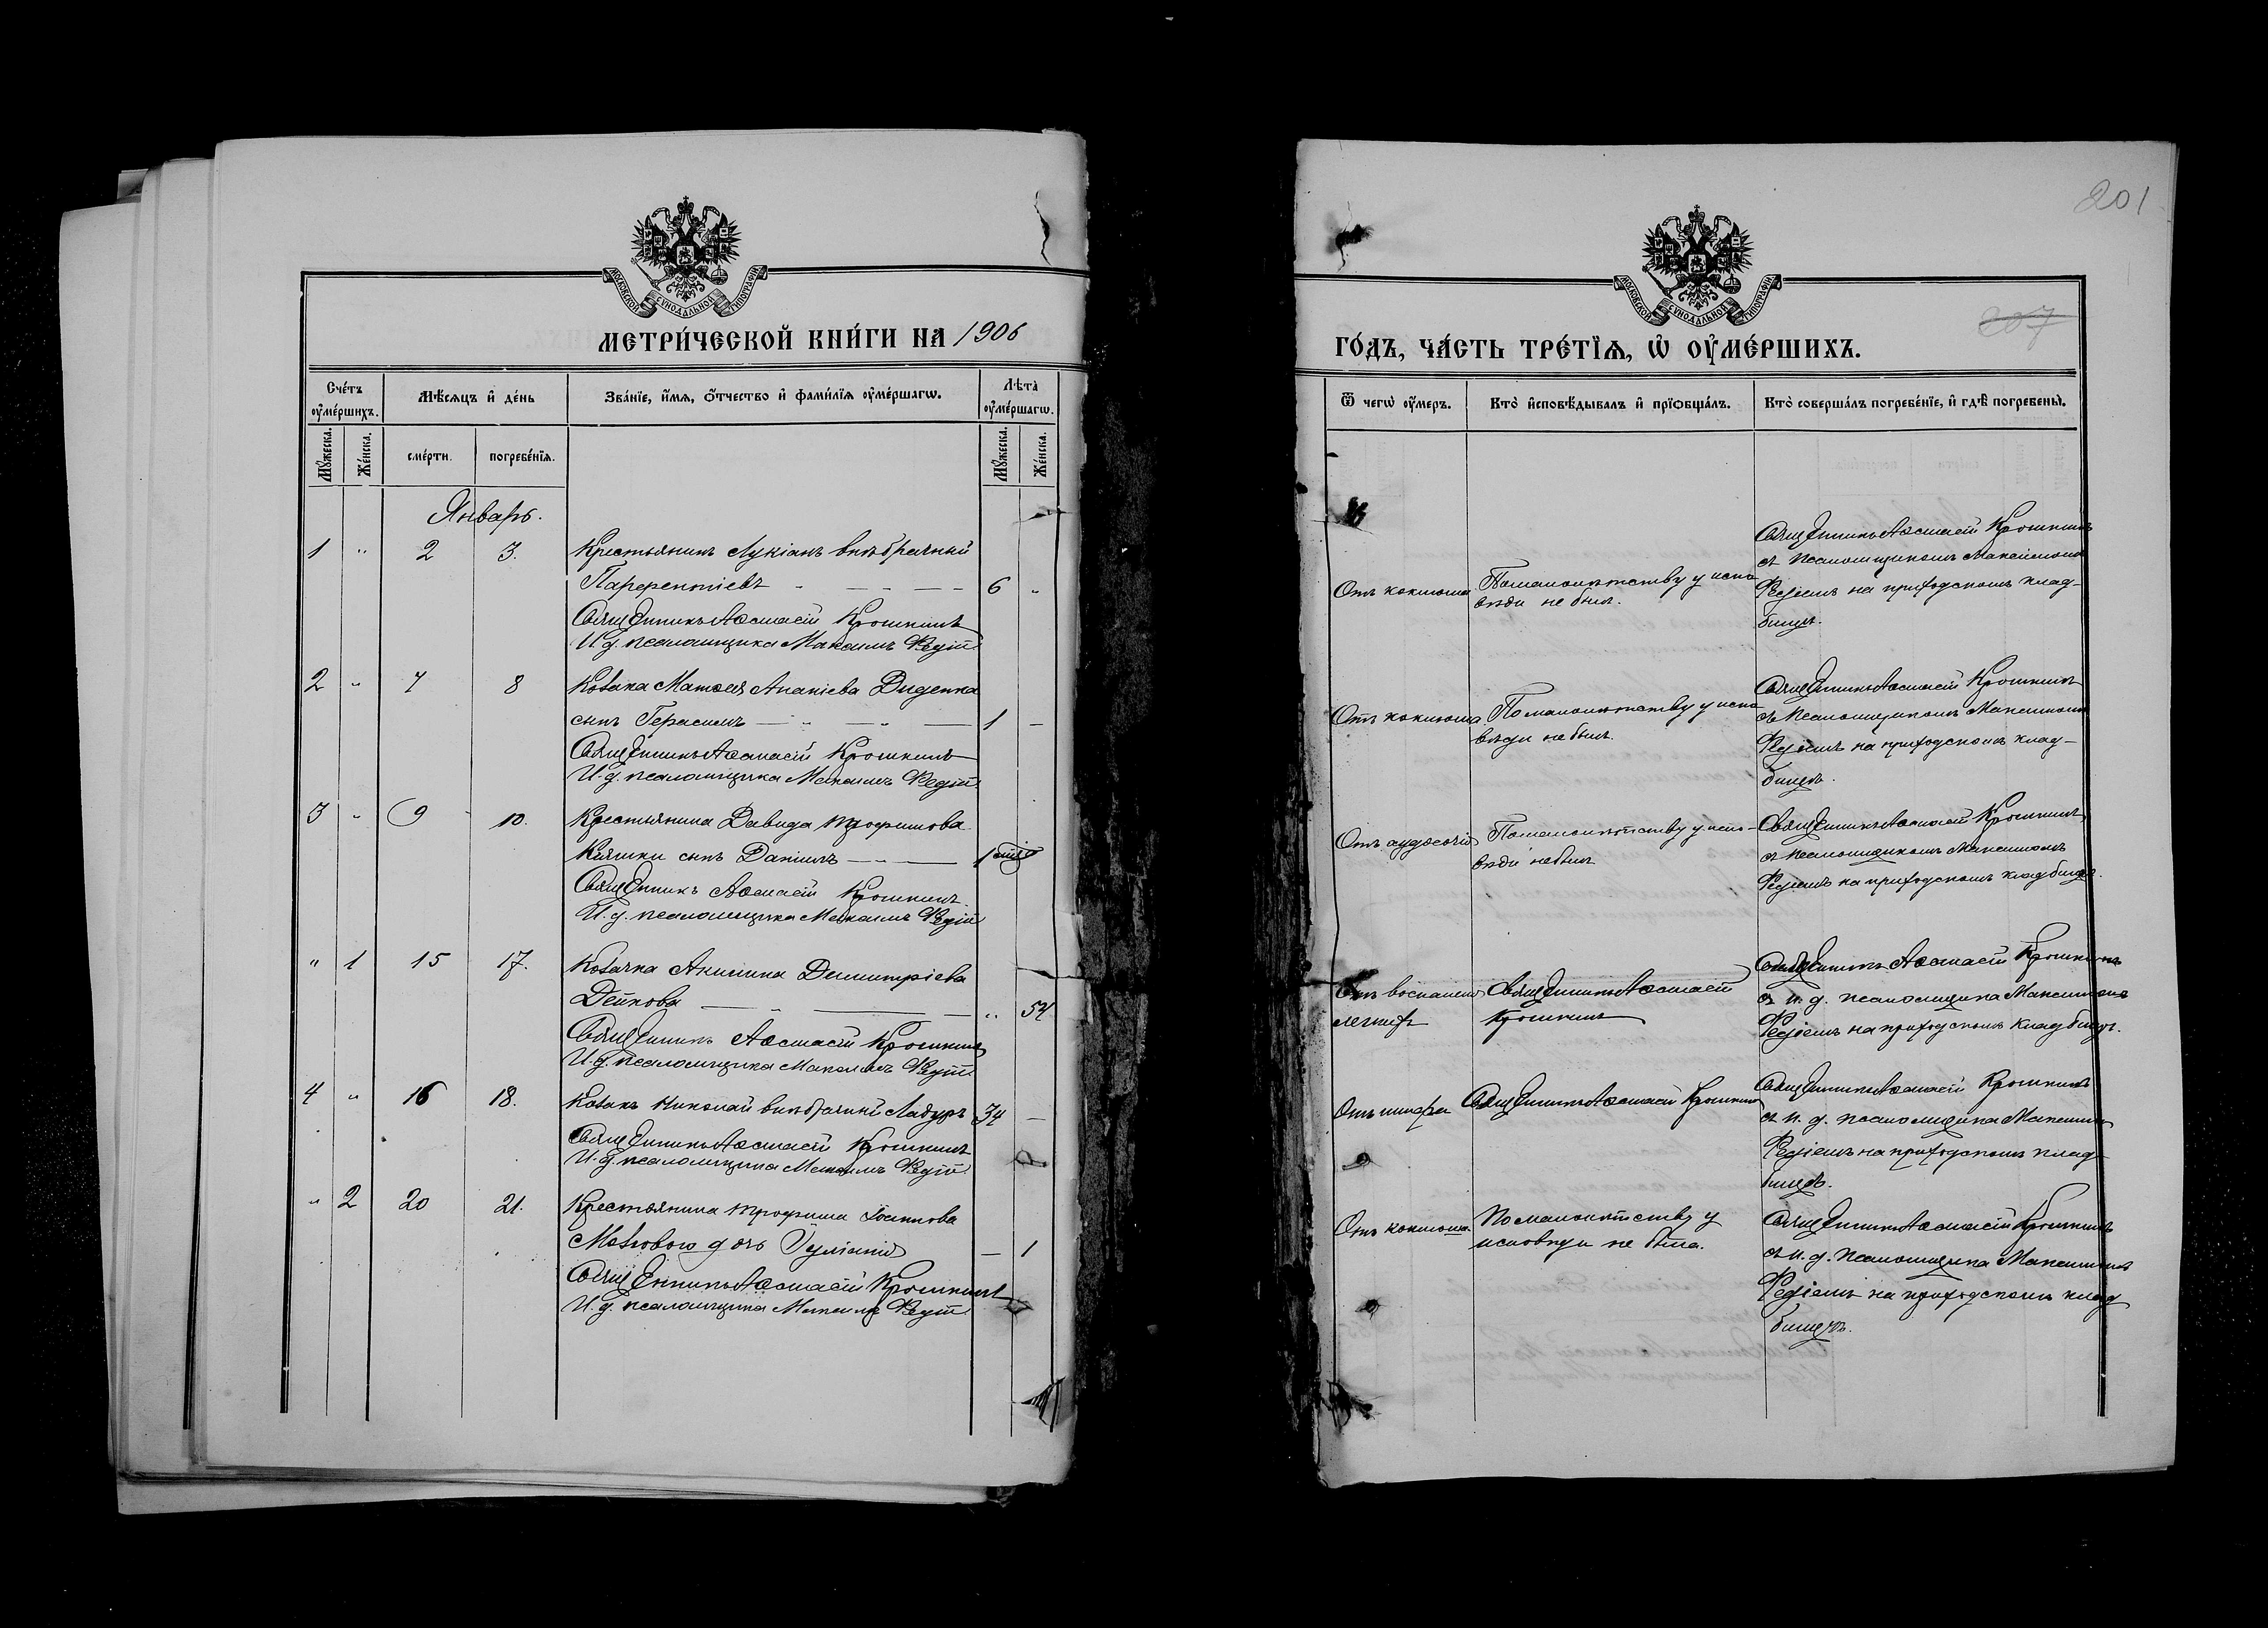 201
МОСКОВСКОЙ СѴНОДАЛЬНОЙ ТИПОГРАФІИ
МОСКОВСКОЙ СѴНОДАЛЬНОЙ ТИПОГРАФІИ
МЕТРИ́ЧЕСКОЙ КНИ́ГИ НА 1906
207
ГО́ДЪ, ЧА́СТЬ ТРЕ́ТІѦ, Ѡ҆ ОУ҆МЕ́РШИХЪ.
Сче́тъ оу҆ме́ршихъ.
Мѣ́сѧцъ и҆ де́нь
Зва́нїе, и҆́мѧ, ѻ҆́тчество и҆ фами́лїѧ оу҆ме́ршагѡ.
Лѣ́та оу҆ме́ршагѡ.
Мꙋ́жеска.
Же́нска.
сме́рти.
погребе́нїѧ.
Мꙋ́жеска.
Же́нска.
Ѿ чегѡ̀ оу҆́меръ.
Кто̀ и҆сповѣ́дывалъ и҆ прїѻбща́лъ.
Кто̀ соверша́лъ погребе́нїе, и҆ гдѣ̀ погребены̀.
Январь.
1 " 2 3. Крестьянинъ Лукіанъ внѣбрачный
Парфентіевъ 6 "
Священникъ Аѳанасій Крошкинъ
И. д. псаломщика Максимъ Федій
Отъ коклюша
По малолѣтству у испо
вѣди не былъ.
Священникъ Аѳанасій Крошкинъ
съ псаломщикомъ Максимомъ
Федіемъ на приходскомъ клад-
бищѣ.
2 " 7 8 Козака Матѳея Ананіева Диденка
сынъ Герасимъ 1 —
Священникъ Аѳанасій Крошкинъ
И. д. псаломщика Максимъ Федій
Отъ коклюша
По малолѣтству у испо
вѣди не былъ.
Священникъ Аѳанасій Крошкинъ
съ псаломщикомъ Максимомъ
Федіемъ на приходскомъ клад-
бищѣ.
3 " 9 10. Крестьянина Давида Трофимова
сынъ Даніилъ 1
Священникъ Аѳанасій Крошкинъ
И. д. псаломщика Максимъ Федій
Отъ
По малолѣтству у испо-
вѣди не былъ
Священникъ Аѳанасій Крошкинъ
съ псаломщикомъ Максимомъ
Федіемъ на приходскомъ кладбищѣ.
" 1 15 17. Козачка Акилина Димитріева
Дейкова " 54
Священникъ Аѳанасій Крошкинъ
И. д. псаломщика Максимъ Федій
Отъ воспаленія
легкихъ
Священникъ Аѳанасій
Крошкинъ
Священникъ Аѳанасій Крошкинъ
съ и. д. псаломщика Максимомъ
Федіемъ на приходскомъ кладбищѣ.
4 " 16 18. Козакъ Николай внѣбрачный 34 —
Священникъ Аѳанасій Крошкинъ
И. д. псаломщика Максимъ Федій
Отъ тифа
Священникъ Аѳанасій Крошкинъ
Священникъ Аѳанасій Крошкинъ
съ и. д. псаломщика Максимомъ
Федіемъ на приходскомъ клад-
бищѣ.
" 2 20 21. Крестьянина Трофима Іоаннова
Мозгового дочь Іуліанія — 1
Священникъ Аѳанасій Крошкинъ
И. д. псаломщика Максимъ Федій
Отъ коклюша
По малолѣтству у
исповѣди не была.
Священникъ Аѳанасій Крошкинъ
съ и. д. псаломщика Максимомъ
Федіемъ на приходскомъ клад
бищѣ.